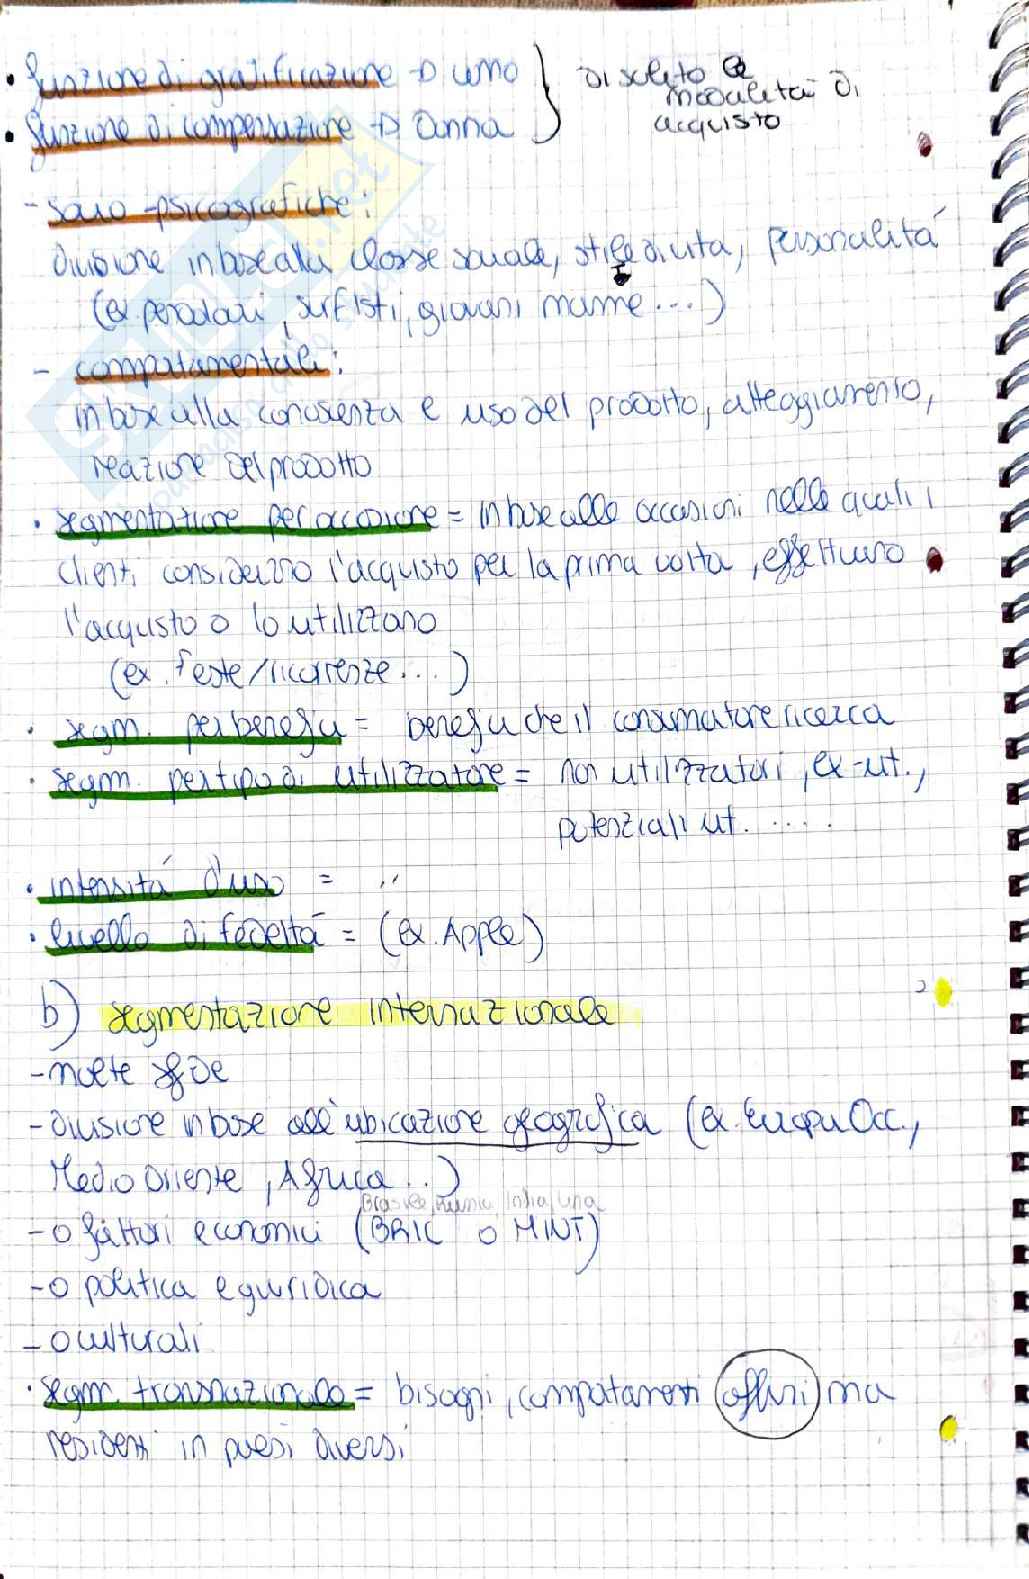 • funzione di gratificazione → uomo
• funzione di compensazione → donna
} Di solito le
modalità di
acquisto
- socio-psicografiche:
divisione in base alla classe sociale, stile di vita, personalità
(ex. pendolari, surfisti, giovani mamme...)
- comportamentali:
in base alla conoscenza e uso del prodotto, atteggiamento,
reazione del prodotto
• segmentazione per occasione = in base alle occasioni nelle quali i
clienti considerano l'acquisto per la prima volta, effettuano
l'acquisto o lo utilizzano
(ex. feste/ricorrenze...)
• segm. per benefici = benefici che il consumatore ricerca
• segm. per tipo di utilizzatore = non utilizzatori, ex-ut.,
potenziali ut. .....
• intensità d'uso = ,,
• livello di fedeltà = (ex. Apple)
b) segmentazione internazionale
- molte sfide
- divisione in base all'ubicazione geografica (ex. Europa Occ.,
Medio Oriente, Africa...)
Brasile, Russia, India, Cina
- o fattori economici (BRIC o MINT)
- o politica e giuridica
- o culturali
• segm. transnazionale = bisogni, comportamenti affini ma
residenti in paesi diversi